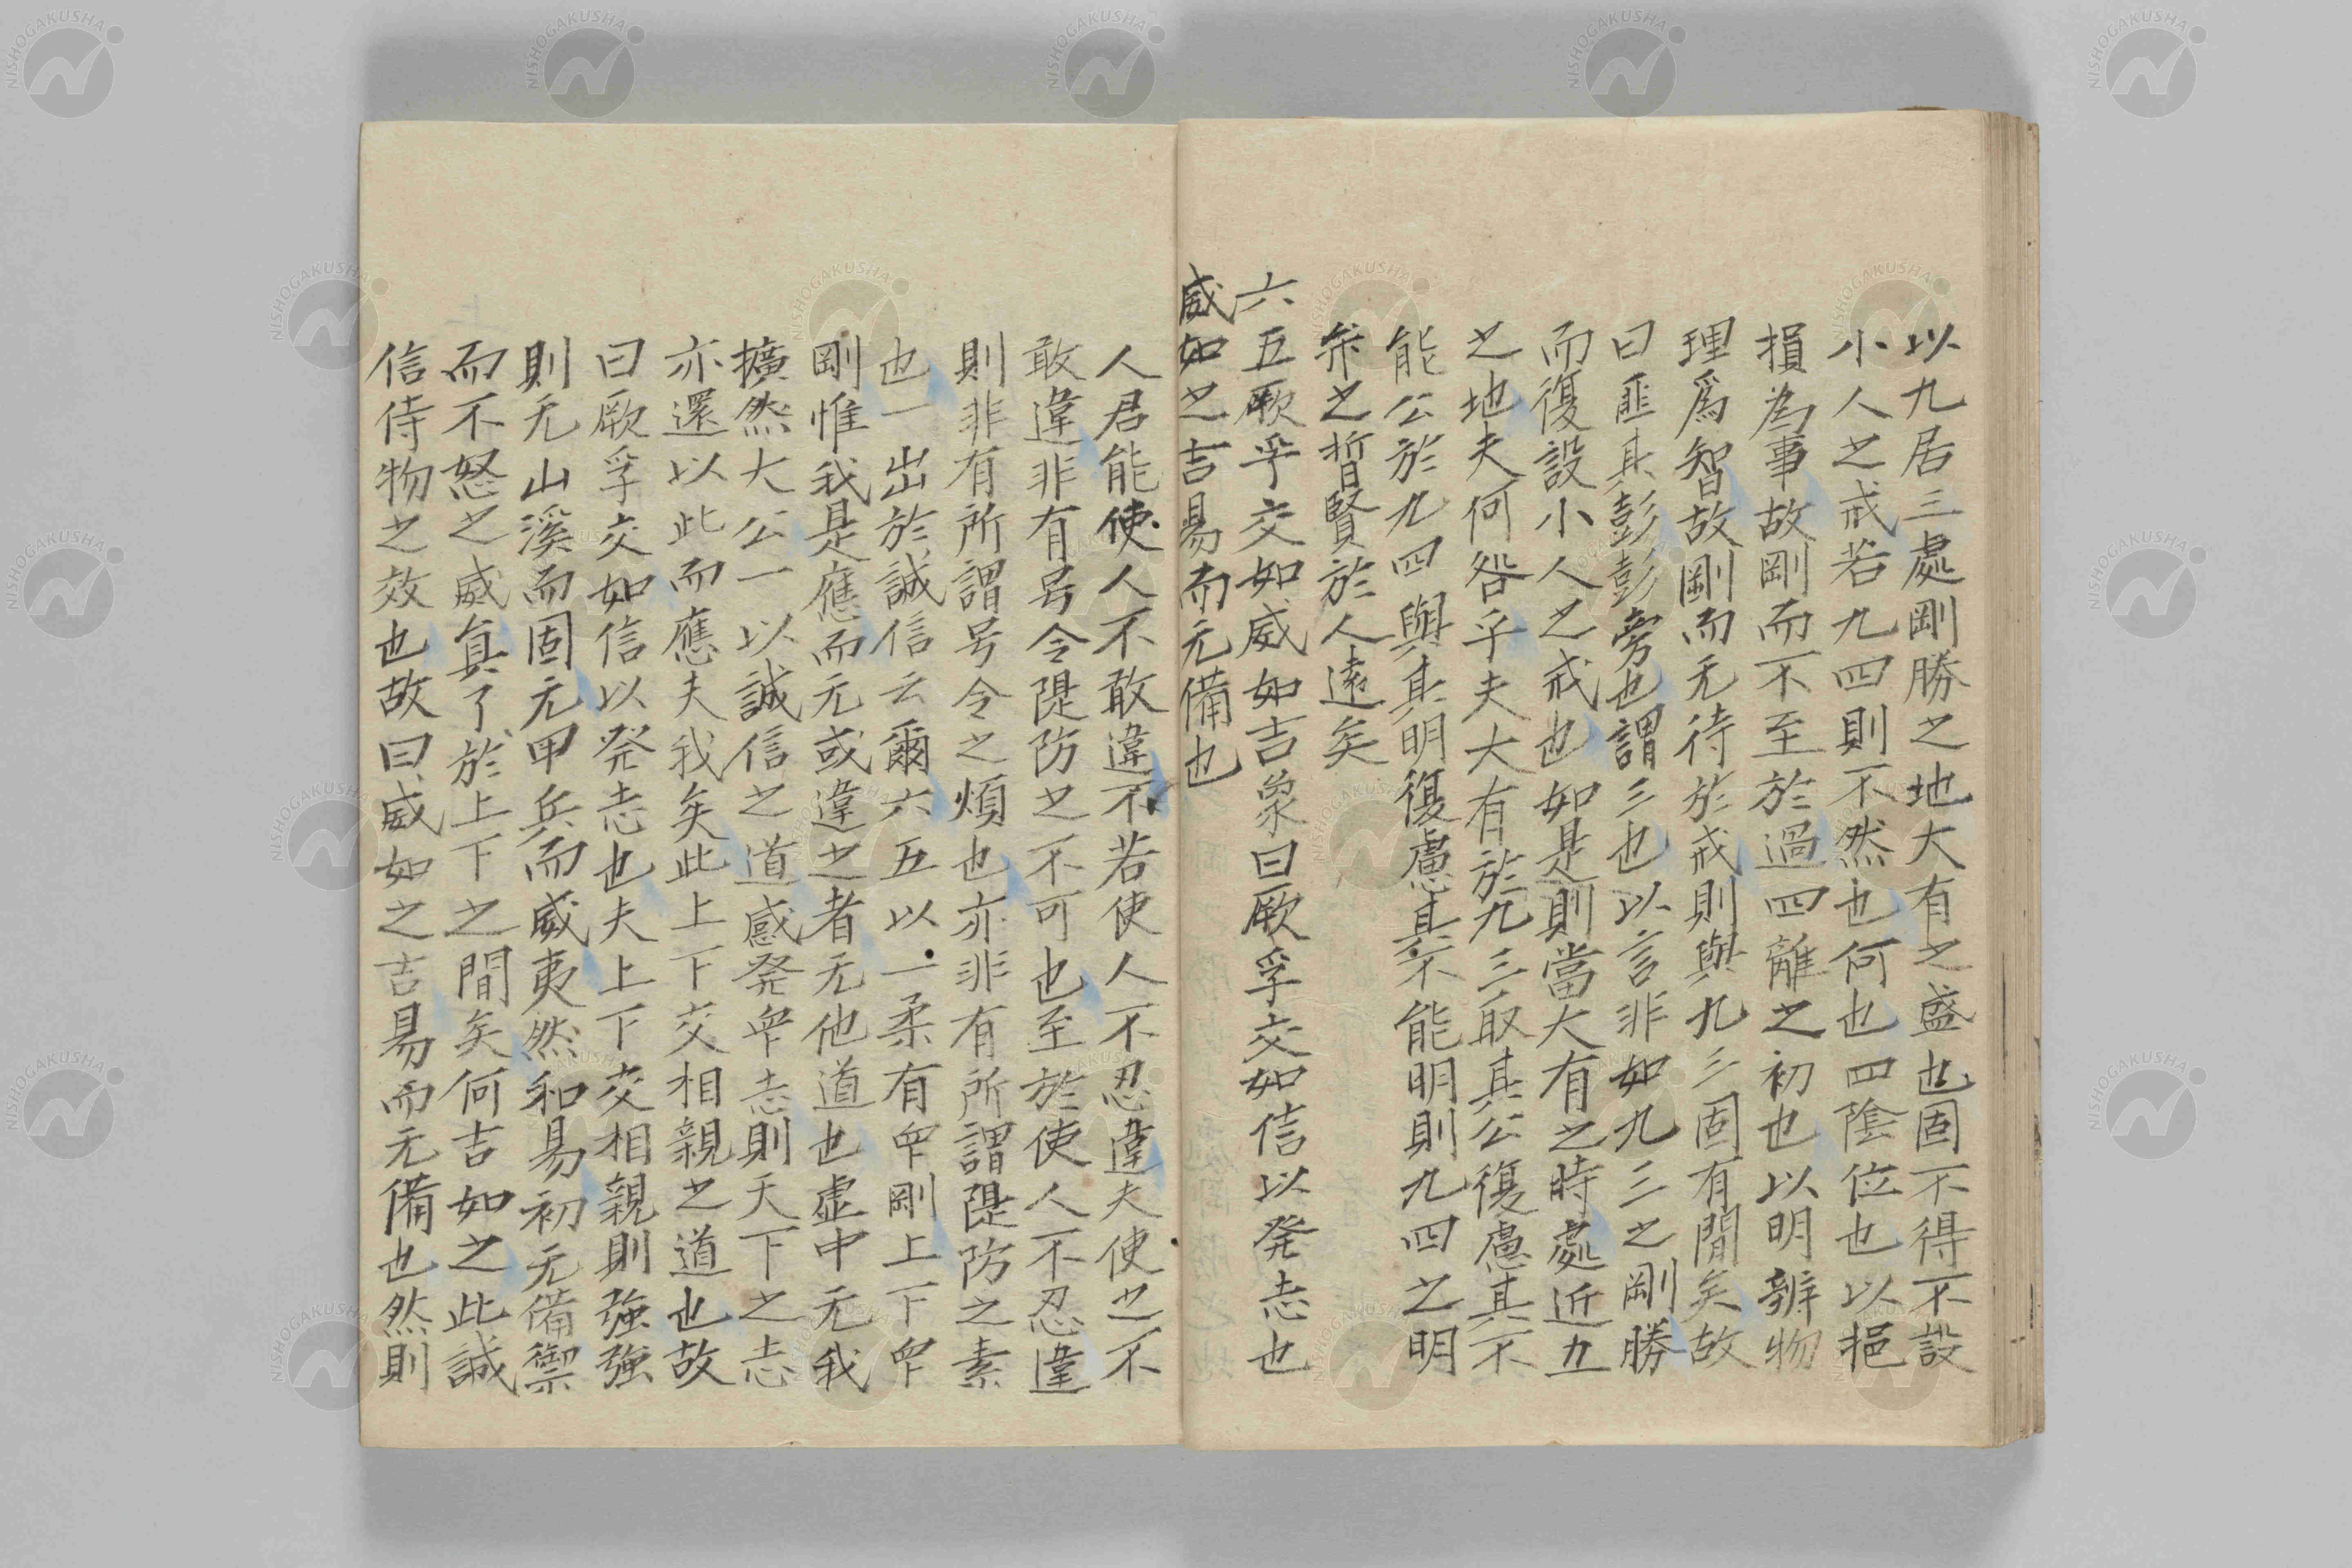 以九居三處剛勝之地大有之盛也固不得不設
小人之戒若九四則不然也何也四陰位也以挹
損為事故剛而不至於過四離之初也以明辨物
理爲智故剛而无待於戒則與九三固有間矣故
曰匪其彭彭旁也謂三也以言非如九三之剛勝
而復設小人之戒也如是則當大有之時處近五
之地夫何咎乎夫大有於九三取其公復慮其不
能公於九四與其明復慮其不能明則九四之明
弁之晢賢於人遠矣
六五厥孚交如威如吉象曰厥孚交如信以発志也
威如之吉易而无備也
人君能使人不敢違不若使人不忍違夫使之不
敢違非有号令隄防之不可也至於使人不忍違
則非有所謂号令之煩也亦非有所謂隄防之素
也一出於誠信云爾六五以一柔有衆剛上下衆
剛惟我是應而元或違之者无他道也虚中无我
擴然大公一以誠信之道感発衆志則天下之志
亦還以此而應夫我矣此上下交相親之道也故
曰厥孚交如信以発志也夫上下交相親則強強
則无山溪而固元甲兵而威夷然和易初无備禦
而不怒之威真了於上下之間矣何吉如之此誠
信待物之效也故曰威如之吉易而无備也然則
NISHOGAKUSHA